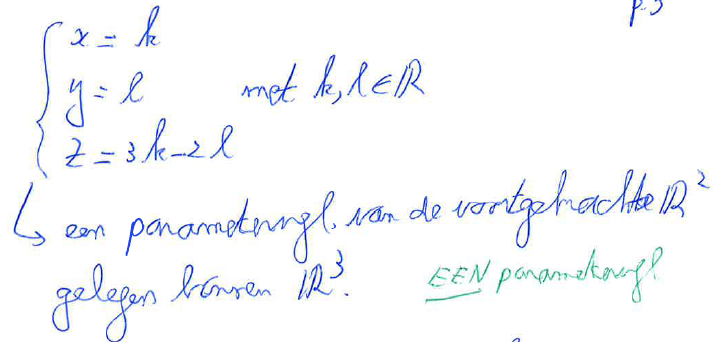 p.3
x = k
y = l met k, l ∈ ℝ
z = 3k - 2l
↳ een parametervgl. van de voortgebrachte ℝ²
gelegen binnen ℝ³. EEN parametervgl.